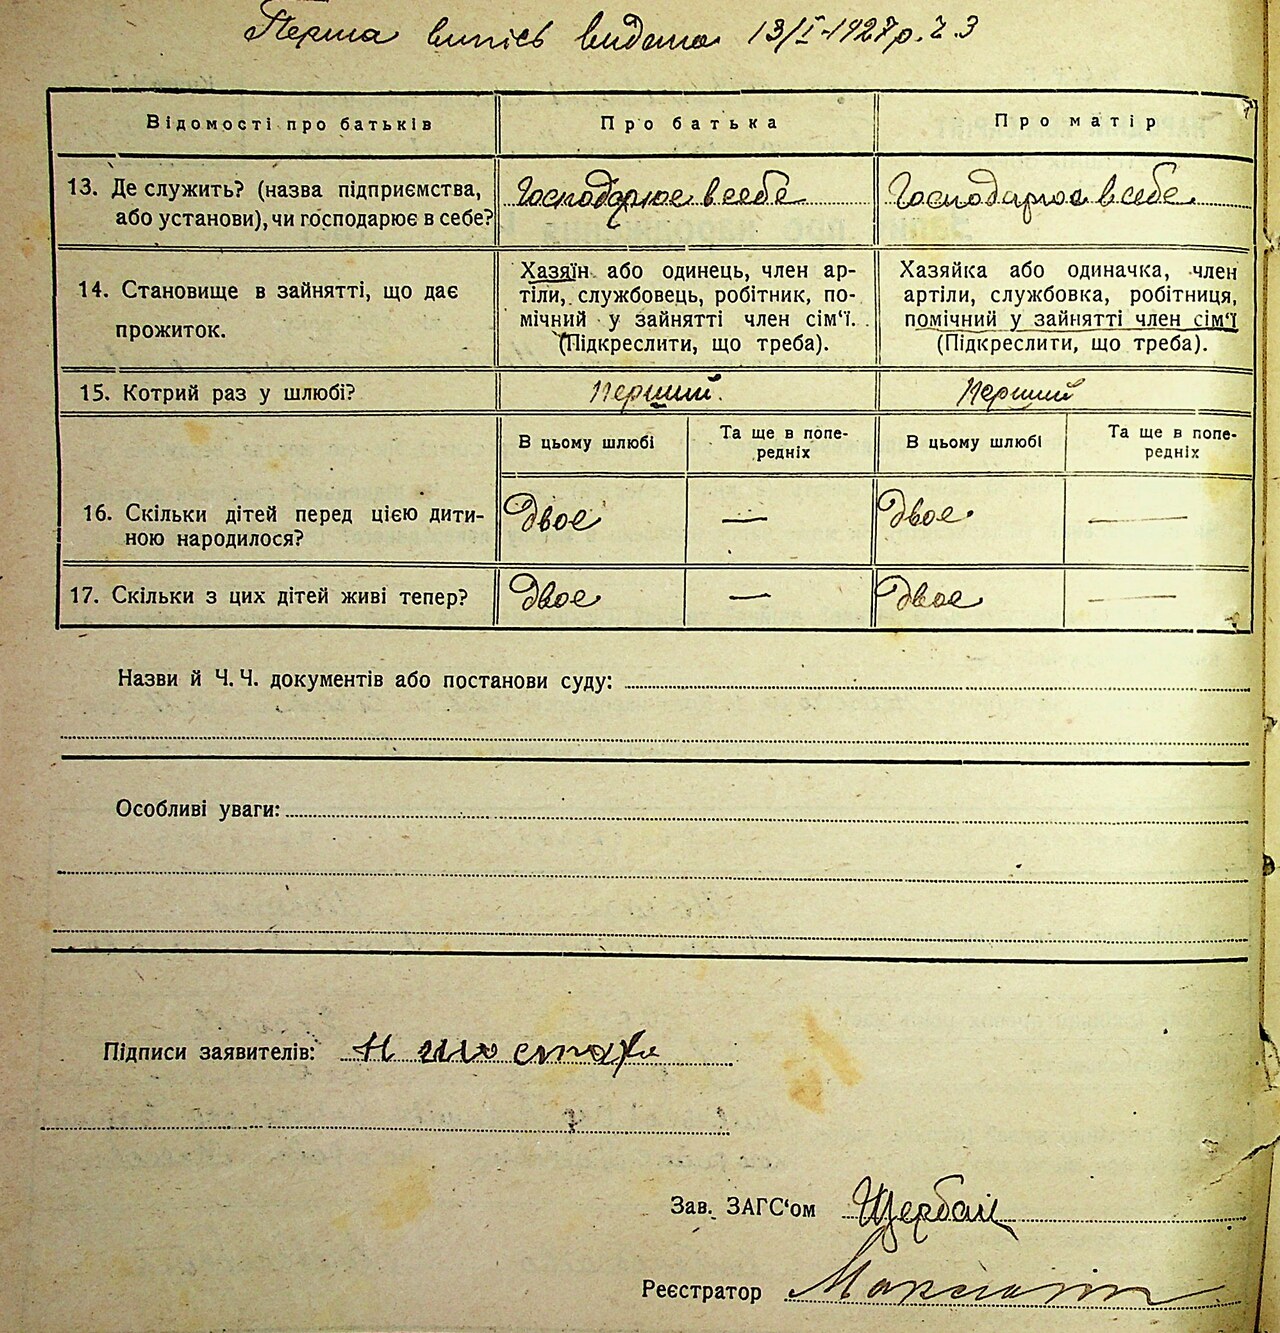 Перша випісь видана 13/I-1927 р. ч. 3
Відомості про батьків
Про батька
Про матір
13. Де служить? (назва підприємства,
або установи), чи господарює в себе?
Господарює в себе
Господарює в себе
14. Становище в зайнятті, що дає
прожиток.
Хазяїн або одинець, член ар-
тіли, службовець, робітник, по-
мічний у зайнятті член сім'ї.
(Підкреслити, що треба).
Хазяйка або одиначка, член
артіли, службовка, робітниця,
помічний у зайнятті член сім'ї
(Підкреслити, що треба).
15. Котрий раз у шлюбі?
Перший.
Перший
В цьому шлюбі
Та ще в попе-
редніх
В цьому шлюбі
Та ще в попе-
редніх
16. Скільки дітей перед цією дити-
ною народилося?
двоє
—
двоє
—
17. Скільки з цих дітей живі тепер?
двоє
—
двоє
—
Назви й Ч. Ч. документів або постанови суду:
Особливі уваги:
Підписи заявителів:
Зав. ЗАГС'ом
Реєстратор